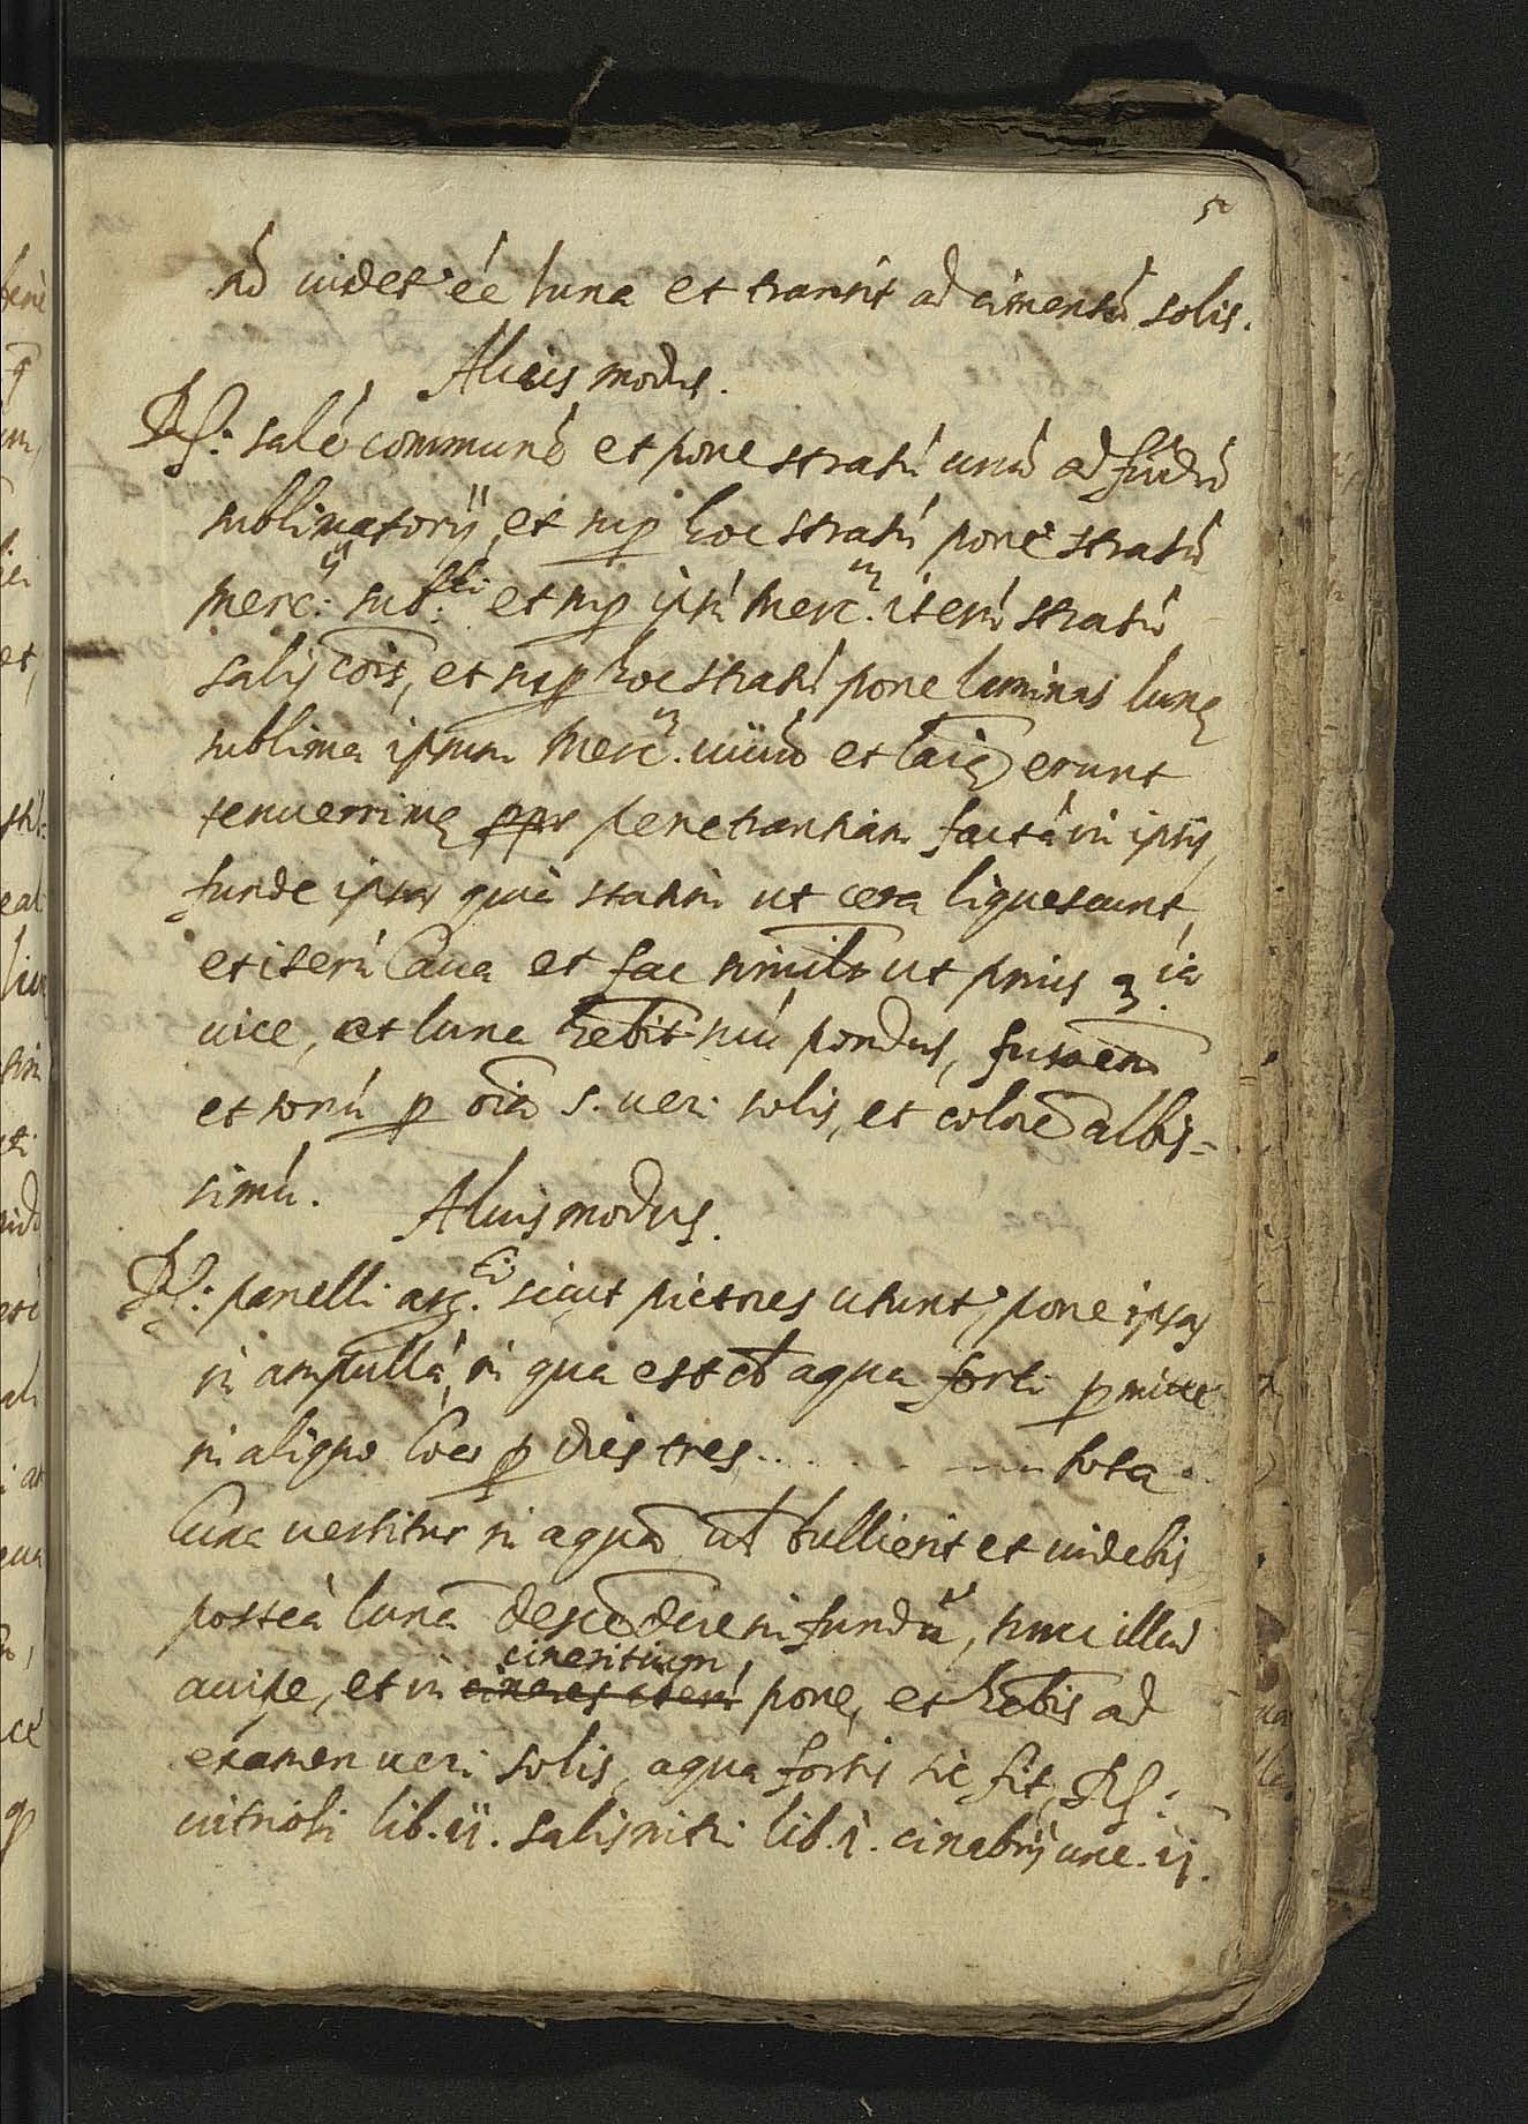 52
nō uidet' ēe luna et transit ad cimentū solis.
Alius modus.
R/: salé communē et pone stratū unū ad fūdū
sublimatorij, et sup hoc stratū pone stratū
merc:ij sub:ti et sup ipsū merc.m iterū stratū
salis cōis, et sup hoc stratū pone laminas lunę
sublima ipsum merc.m uiuū et laīę erunt
tenuerrimę ppr penetrantiam factā in ipsis,
funde ipsas quia statim ut cera liquescunt,
et iterū laua et fac similr ut prius 3.ia
uice, et luna hebit suū pondus, fusioēm
et sonū p oīa s. ueri solis, et colorē albis=
simū.
Alius modus.
R/: panelli arg.ti sicut pictores utunt', pone ipsas
in ampullā, in qua est aqua forti pmitte
in aliquo loco p dies tres . . . . . . . tota
luna uertitur in aquā ut bullierit et uidebis
posteà lunā descēdere in fundū, tunc illud
cineritium
accipe, et in cineres iterū pone, et hebis ad
examen ueri solis, aqua fortis sic fit, R/:
uitrioli lib. ij. salis nitri lib. i. cinabrij unc. ij.